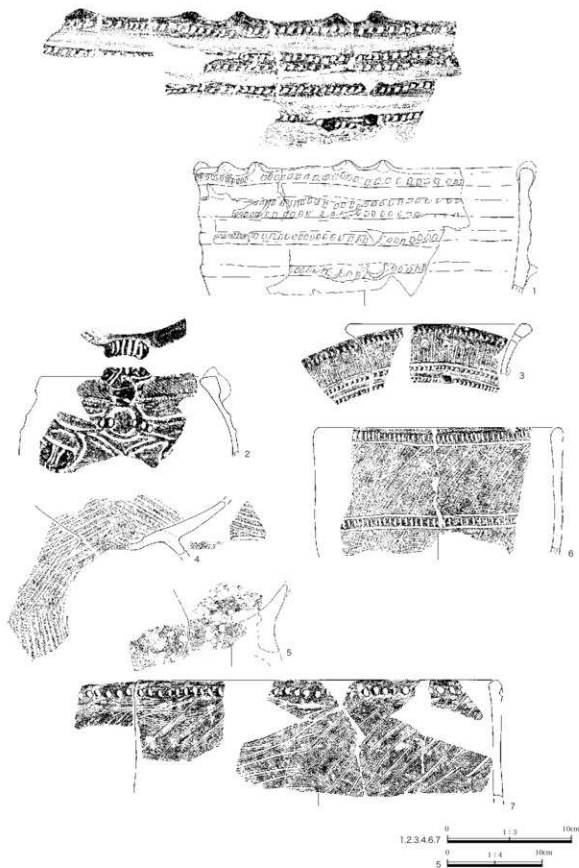 1
2
3
4
5
6
7
1.2.3.4.6.7 0 1:3 10cm
5 0 1:4 10cm